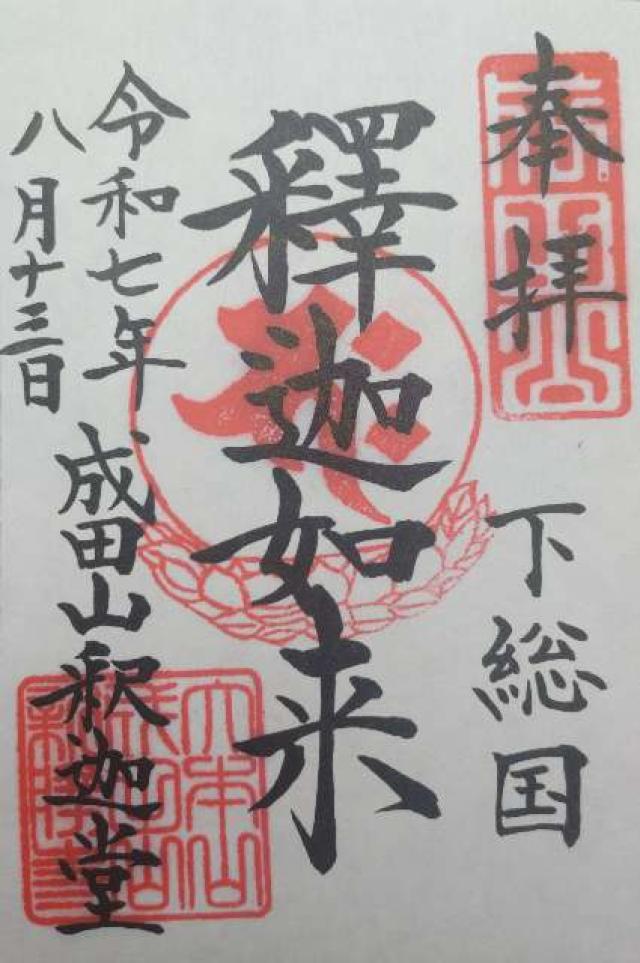 奉拝
下総国
釋迦如来
令和七年
八月十三日
成田山釈迦堂